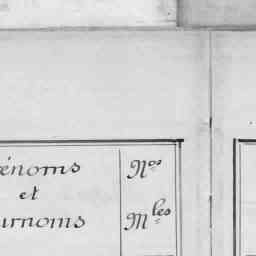 énoms
et
urnoms
Nos
Mles